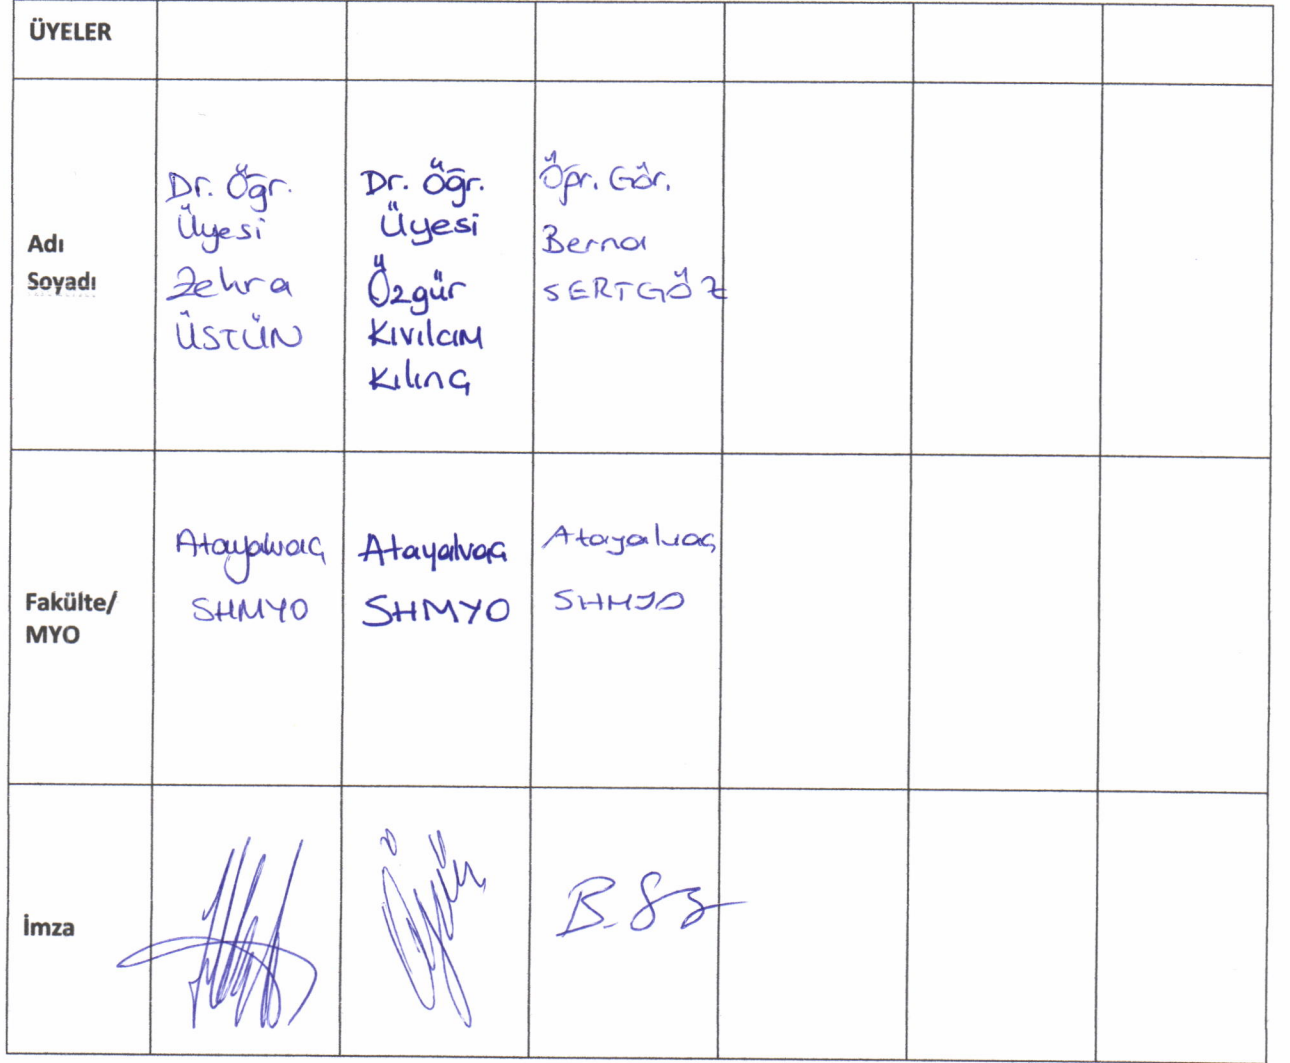 ÜYELER
Adı
Soyadı
Dr. Öğr.
Üyesi
Zehra
ÜSTÜN
Dr. Öğr.
Üyesi
Özgür
Kıvılcım
Kılınç
Öğr. Gör.
Berna
SERTGÖZ
Fakülte/
MYO
Atayalvaç
SHMYO
Atayalvaç
SHMYO
Atayalvaç
SHMYO
İmza